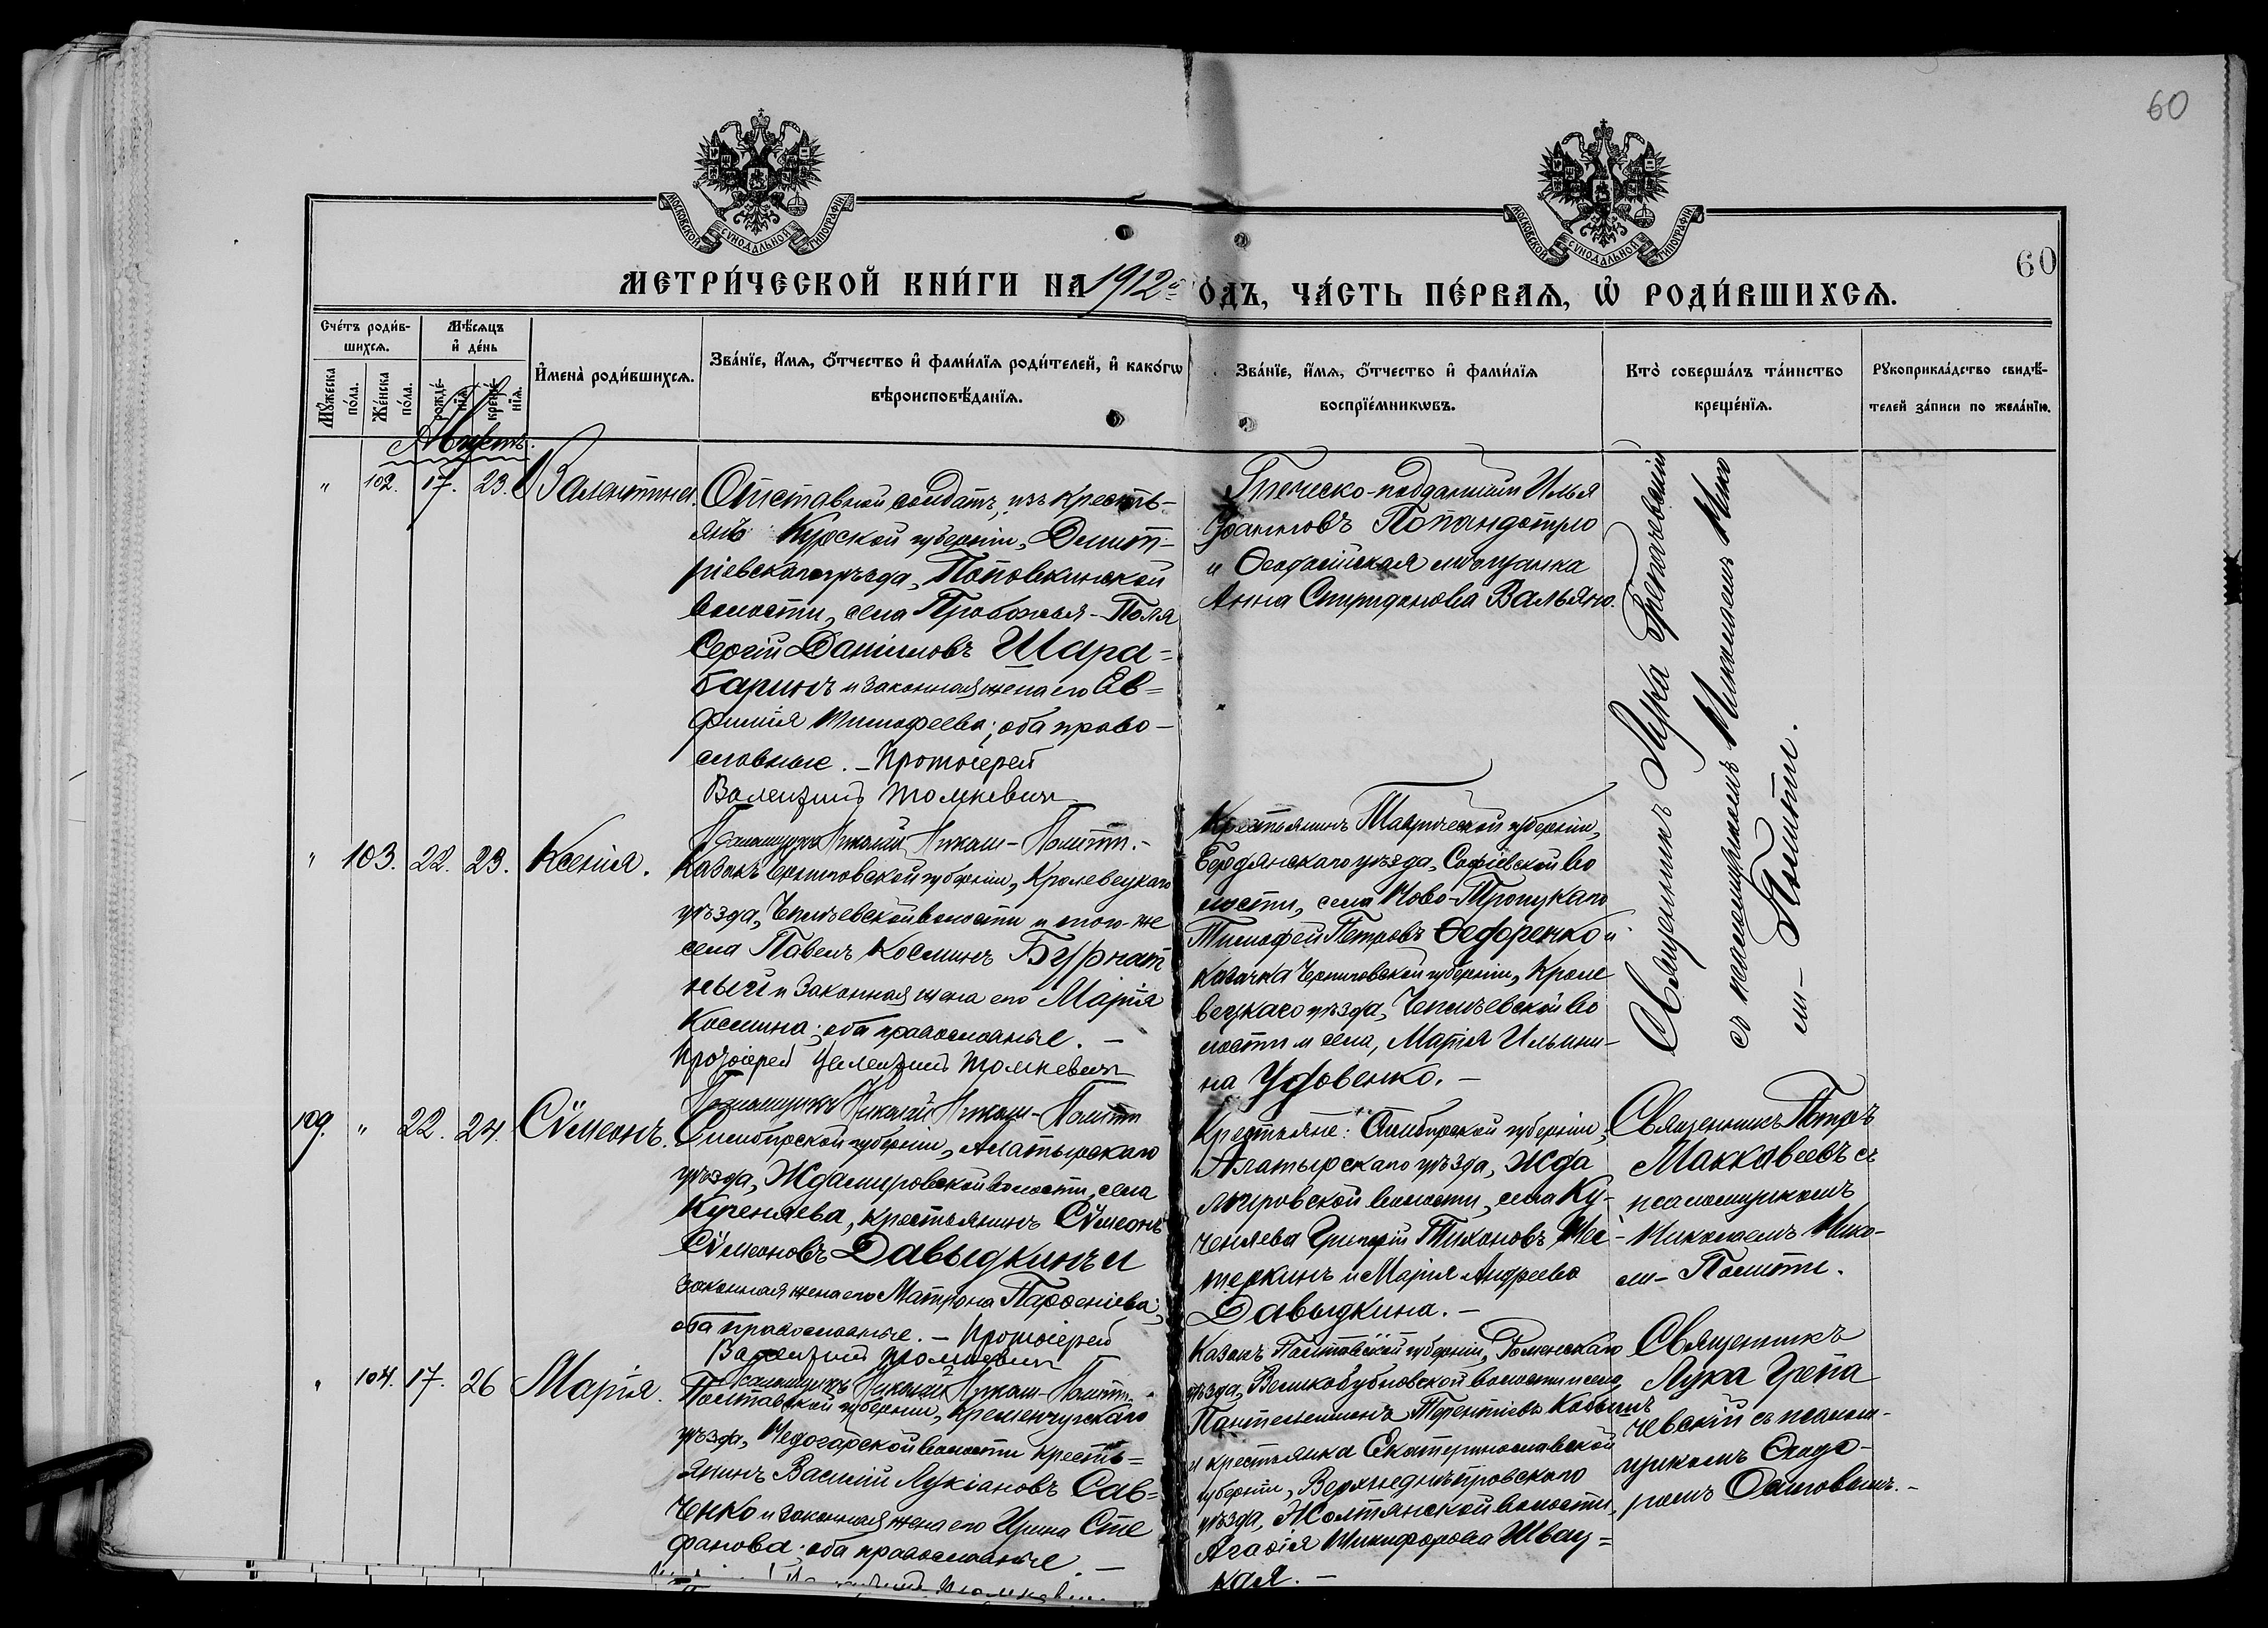 60
МОСКОВСКОЙ СѴНОДАЛЬНОЙ ТИПОГРАФІИ
МОСКОВСКОЙ СѴНОДАЛЬНОЙ ТИПОГРАФІИ
60
МЕТРИ́ЧЕСКОЙ КНИ́ГИ НА 1912й
О́ДЪ, ЧА́СТЬ ПЕ́РВАѦ, Ѡ҆ РОДИ́ВШИХСѦ.
Сче́тъ роди́в-
шихсѧ.
Мꙋ́жеска по́ла.
Же́нска по́ла.
Мѣ́сѧцъ
и҆ де́нь
рожде́-
нїѧ.
креще́-
нїѧ.
И҆мена̀ роди́вшихсѧ.
Зва́нїе, и҆́мѧ, ѻ҆́тчество и҆ фами́лїѧ роди́телей, и҆ како́гѡ
вѣроисповѣ́данїѧ.
Зва́нїе, и҆́мѧ, ѻ҆́тчество и҆ фами́лїѧ
воспрїе́мникѡвъ.
Кто̀ соверша́лъ та́инство
креще́нїѧ.
Рꙋкоприкла́дство свидѣ́-
телей за́писи по жела́нїю.
Августъ.
" 102. 17. 23. Валентина.
Отставной солдатъ, изъ кресть-
янъ Курской губерніи, Дмит-
ріевского уѣзда, Поповкинской
волости, села Пробожья-Поля
Сергій Даніиловъ Шара-
баринъ и законная жена его Ев-
фимія Тимофеева; оба право-
славные. - Протоіерей
Валентинъ Томкевичъ
Псаломщикъ Николай Николи-Политти.-
Греческо-подданный Илья
Попандопуло
и Феодосійская мѣщанка
Анна Спиридонова Вальяно.
Священникъ Лука Грепачевскій
съ псаломщикомъ Николаемъ Нико
ли-Политти.
" 103. 22. 23. Ксенія.
Казакъ Черниговской губерніи, Кролевецкаго
уѣзда, волости и того-же
села Павелъ Косминъ Бурнат
ный и законная жена его Марія
Космина; оба православные. -
Протоіерей Валентинъ Томкевичъ
Псаломщикъ Николай Николи-Политти
Крестьянинъ Таврической губерніи,
Бердянскаго уѣзда, Софіевской во
лости, села Ново-Троицкаго
Тимофей Петровъ Ѳедоренко и
казачка Черниговской губерніи, Кроле
вецкаго уѣзда, во
лости и села, Марія Ильини-
на Удовенко. -
109. " 22. 24. Сѵмеонъ.
Симбирской губерніи, Алатырскаго
уѣзда, Ждамировской волости, села
Кученяева, крестьянинъ Сѵмеонъ
Сѵмеоновъ Давыдкинъ и
законная жена его Матрона Парѳеніева;
оба православные. - Протоіерей
Валентинъ Томкевичъ
Псаломщикъ Николай Николи-Политти.
Крестьяне: Симбирской губерніи,
Алатырскаго уѣзда, Жда
мировской волости, села Ку-
ченяева Григорій Тихоновъ
и Марія Андреева
Давыдкина. -
Священникъ Петръ
Маккавеевъ съ
псаломщикомъ
Николаемъ Нико-
ли-Политти.
" 104. 17. 26 Марія.
Полтавской губерніи, Кременчугскаго
уѣзда, волости кресть-
янинъ Василій Лукіановъ Сав-
ченко и законная жена его Ирина Сте
фанова; оба православные. -
Казакъ Полтавской губерніи, Роменскаго
уѣзда, Великобубновской волости и села
Пантелеимонъ Терентіевъ
и крестьянка Екатеринославской
губерніи, Верхнеднѣпровскаго
уѣзда, Жолтянской волости,
Агаѳія Никифорова Швец-
кая. -
Священникъ
Лука Грепа
чевскій съ псалом-
щикомъ Ѳеодо-
ромъ